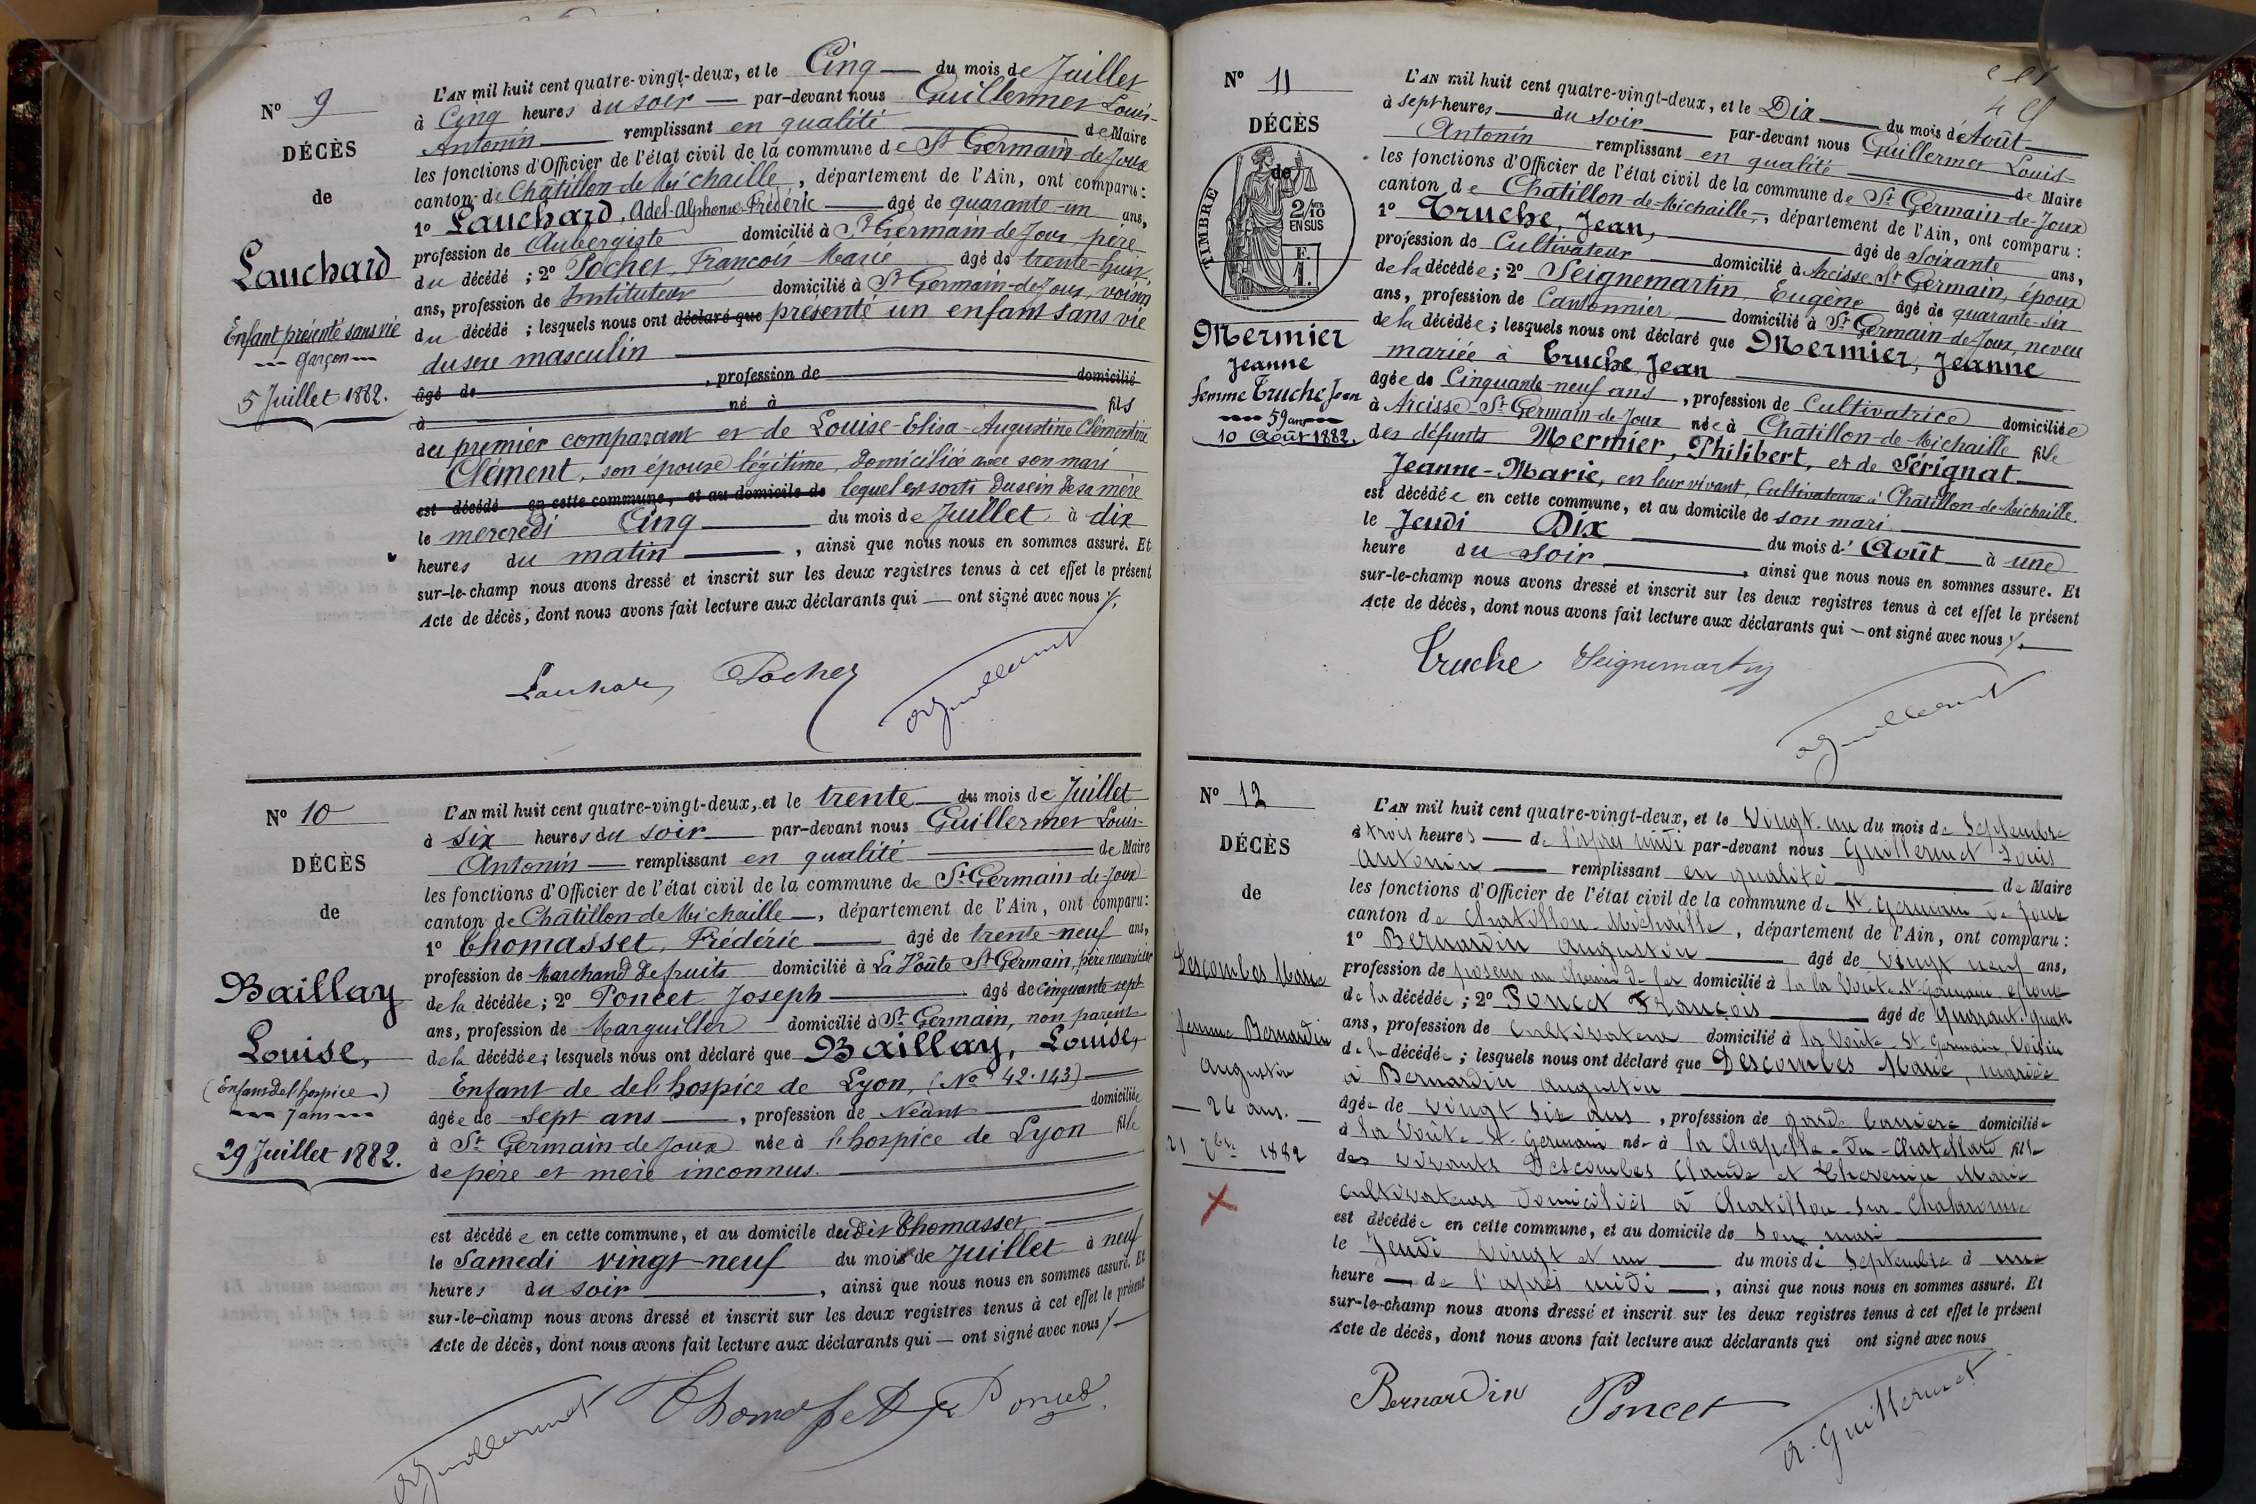 N° 9
DÉCÈS
de
Lauchard
Enfant présenté sans vie
garçon
5 Juillet 1882.
L'AN mil huit cent quatre-vingt-deux, et le Cinq du mois de Juillet
à Cinq heures du soir par-devant nous Guillermet Louis-
Antonin remplissant en qualité de Maire
les fonctions d'Officier de l'état civil de la commune de St Germain-de-Joux
canton de Châtillon-de-Michaille, département de l'Ain, ont comparu :
1° Lauchard, Adel-Alphonse-Frédéric âgé de quarante-un ans,
profession de Aubergiste domicilié à St Germain-de-Joux, père
du décédé ; 2° Pochet, François-Marie âgé de trente-huit
ans, profession de Instituteur domicilié à St Germain-de-Joux, voisin
du décédé ; lesquels nous ont déclaré que présenté un enfant sans vie
du sexe masculin
âgé de , profession de domicilié
à né à fils
du premier comparant et de Louise-Elisa-Augustine Clémentine
Clément, son épouse légitime, domiciliée avec son mari
est décédé en cette commune, et au domicile de lequel est sorti du sein de sa mère
le mercredi Cinq du mois de Juillet à dix
heures du matin, ainsi que nous nous en sommes assuré. Et
sur-le-champ nous avons dressé et inscrit sur les deux registres tenus à cet effet le présent
Acte de décès, dont nous avons fait lecture aux déclarants qui — ont signé avec nous /.
Lauchard Pochet AGuillermet
N° 10
DÉCÈS
de
Baillay
Louise,
(Enfant de l'hospice)
7 ans
29 Juillet 1882.
L'AN mil huit cent quatre-vingt-deux, et le trente du mois de Juillet
à six heures du soir par-devant nous Guillermet Louis-
Antonin remplissant en qualité de Maire
les fonctions d'Officier de l'état civil de la commune de St Germain-de-Joux
canton de Châtillon-de-Michaille, département de l'Ain, ont comparu :
1° Thomasset, Frédéric âgé de trente-neuf ans,
profession de Marchand de fruits domicilié à La Voûte St Germain, père nourricier
de la décédée ; 2° Poncet Joseph âgé de Cinquante-sept
ans, profession de Marguiller domicilié à St Germain, non parent
de la décédée ; lesquels nous ont déclaré que Baillay, Louise,
Enfant de de l'hospice de Lyon, (No 42.143)
âgée de Sept ans, profession de Néant domiciliée
à St Germain de Joux née à l'hospice de Lyon fille
de père et mère inconnus.
est décédée en cette commune, et au domicile dudit Thomasset
le Samedi vingt-neuf du mois de Juillet à neuf
heures du soir, ainsi que nous nous en sommes assuré. Et
sur-le-champ nous avons dressé et inscrit sur les deux registres tenus à cet effet le présent
Acte de décès, dont nous avons fait lecture aux déclarants qui — ont signé avec nous /.
AGuillermet Thomasset Poncet
N° 11
DÉCÈS
de
TIMBRE
2/10
EN SUS
F.
1.
Mermier
Jeanne
femme Truche Jean
59 ans
10 Août 1882.
L'AN mil huit cent quatre-vingt-deux, et le Dix du mois d'Août
à sept heures du soir par-devant nous Guillermet Louis-
Antonin remplissant en qualité de Maire
les fonctions d'Officier de l'état civil de la commune de St Germain-de-Joux
canton de Châtillon-de-Michaille, département de l'Ain, ont comparu :
1° Truche, Jean, âgé de Soixante ans,
profession de Cultivateur domicilié à Arcisse St Germain, époux
de la décédée ; 2° Seignemartin, Eugène âgé de quarante-six
ans, profession de Cantonnier domicilié à St Germain-de-Joux, neveu
de la décédée ; lesquels nous ont déclaré que Mermier, Jeanne
mariée à Truche, Jean
âgée de Cinquante-neuf ans, profession de Cultivatrice domiciliée
à Arcisse St Germain-de-Joux née à Châtillon-de-Michaille fille
des défunts Mermier, Philibert, et de Sérignat
Jeanne-Marie, en leur vivant, Cultivateurs à Châtillon-de-Michaille.
est décédée en cette commune, et au domicile de son mari
le Jeudi Dix du mois d'Août à une
heure du soir, ainsi que nous nous en sommes assuré. Et
sur-le-champ nous avons dressé et inscrit sur les deux registres tenus à cet effet le présent
Acte de décès, dont nous avons fait lecture aux déclarants qui — ont signé avec nous /.
Truche Seignemartin AGuillermet
N° 12
DÉCÈS
de
Descombes Marie
femme Bernardin
Augustin
26 ans.
21 7bre 1882
L'AN mil huit cent quatre-vingt-deux, et le vingt-un du mois de Septembre
à trois heures de l'après midi par-devant nous Guillermet Louis
Antonin remplissant en qualité de Maire
les fonctions d'Officier de l'état civil de la commune de St. Germain de Joux
canton de Chatillon Michaille, département de l'Ain, ont comparu :
1° Bernardin Augustin âgé de vingt neuf ans,
profession de poseur au chemin de fer domicilié à la la Voûte St Germain, époux
de la décédée ; 2° Poncet François âgé de quarant-quatre
ans, profession de cultivateur domicilié à la Voûte St. Germain, voisin
de la décédée ; lesquels nous ont déclaré que Descombes Marie, mariée
à Bernardin Augustin
âgée de vingt six ans, profession de garde barrière domiciliée
à la Voûte St. Germain née à la Chapelle-du-Chatellard fille
des vivants Descombes Claude et Thevenin Marie
cultivateurs domiciliés à Chatillon-sur-Chalaronne
est décédée en cette commune, et au domicile de son mari
le Jeudi vingt et un du mois de Septembre à une
heure de l'après midi, ainsi que nous nous en sommes assuré. Et
sur-le-champ nous avons dressé et inscrit sur les deux registres tenus à cet effet le présent
Acte de décès, dont nous avons fait lecture aux déclarants qui ont signé avec nous
Bernardin Poncet A. Guillermet